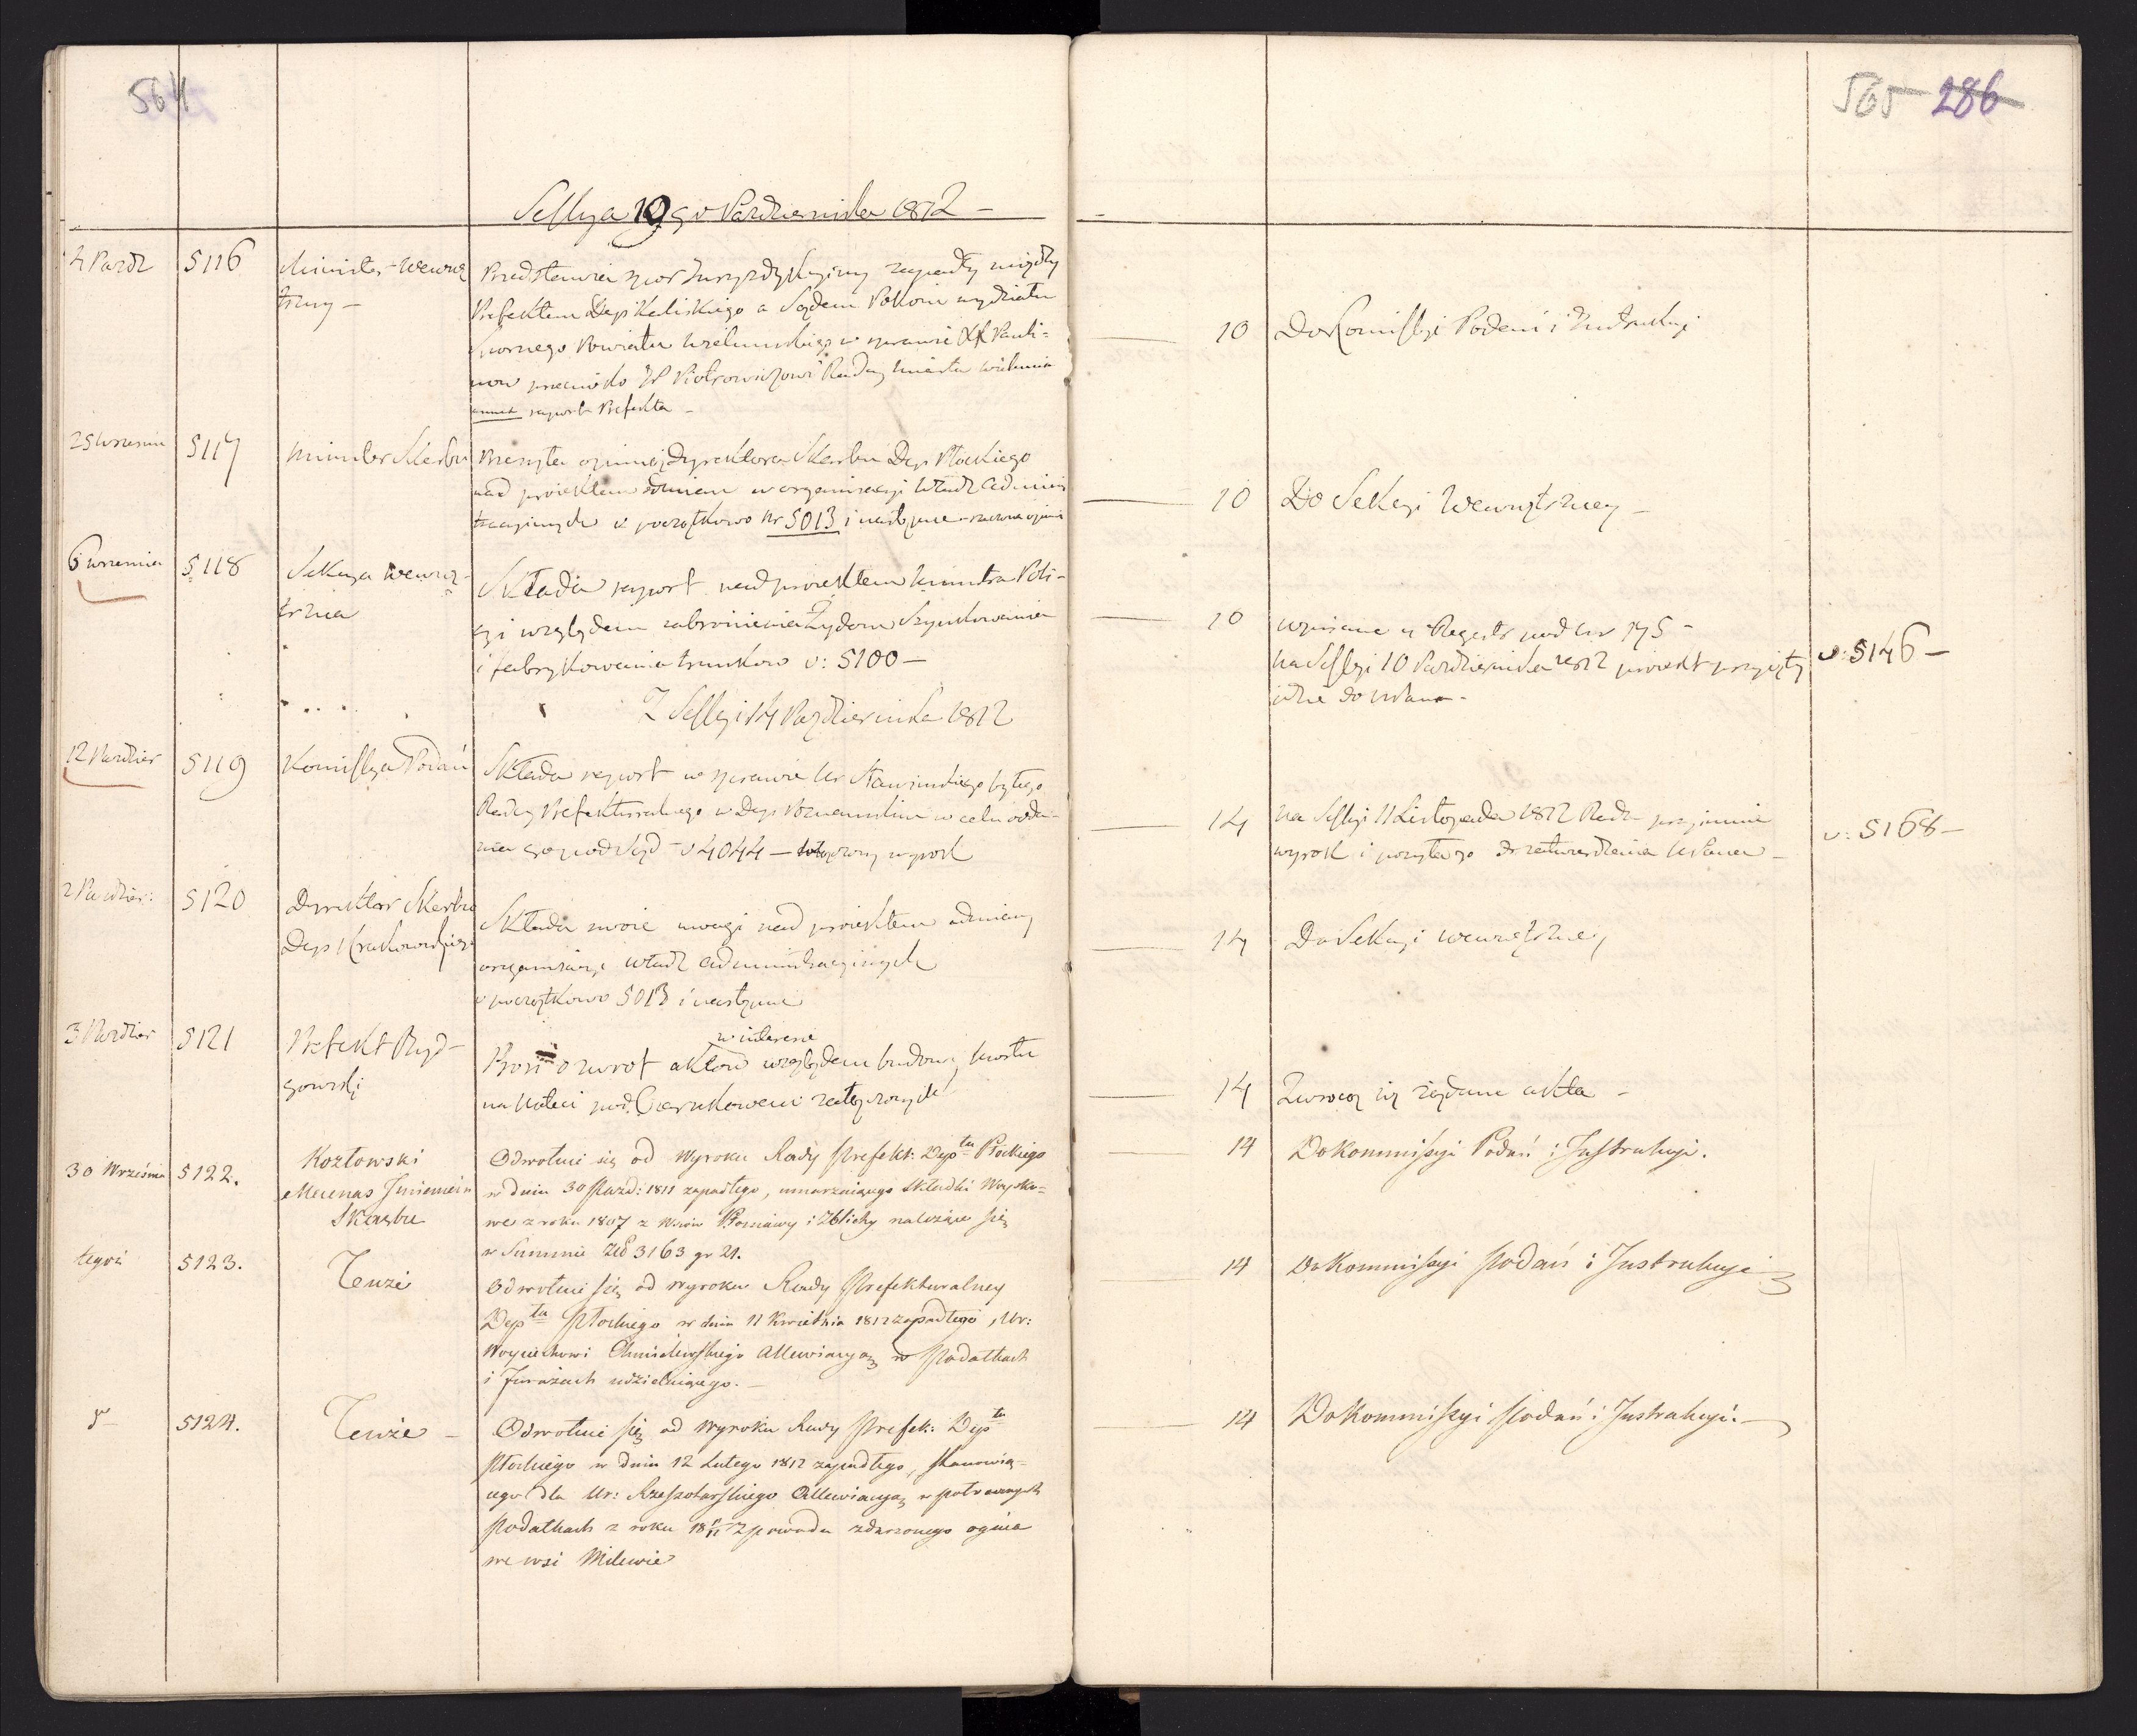 564
565 286
Sessya 10go Października 1812 –
4 Paźdz 5116 Minister Wewnę
trzny –
Przedstawia spor Juryzdykcyiny zapadły między
Prefektem Dep Kaliskiego a Sądem Pokoiu wydziału
Spornego Powiatu Wieluńskiego w sprawie XX Pauli=
now przeciwko JP Piotrowiczowi Radcy miasta Wielunia
annex raport Prefekta –
10 Do Komissyi Podań i Instrukcyi
25 Wrzesnia 5117 Minister Skarbu
Przesyła opinią Dyrektora Skarbu Dep Płockiego
nad proiektem odmian w organizacyi Władz Admini
tracyinych v początkowo Nr 5013 i następne
10 Do Sekcyi Wewnętrzney –
6 Wrzesnia 5118 Sekcya Wewnę-
trzna
Składa raport nad proiektem Ministra Poli-
cyi względem zabronienia Żydom Szynkowania
i fabrykowania trunkow v: 5100 –
10 wpisane w Regestr pod Nr 175 –
na Sessyi 10 Października 1812 proiekt przyięty
idzie do
v: 5146 –
Z Sessyi 14 Października 1812
12 Paździer 5119 Komissya Podań
Składa raport w sprawie Ur Stawinskiego byłego
Radcy Prefekturalnego w Dep Poznanskim w celu odda-
nia go pod Sąd – v 4044 – wyrok
14 na Sessyi 11 Listopada 1812 Rada przyimuie
wyrok i posyła go do zatwierdzenia
v: 5168 –
2 Paździer: 5120 Dyrektor Skarbu
Dep Krakowskiego
Składa swoie uwagi nad proiektem odmiany
organizacyi Władz Administracyinych
v początkowo 5013 i następne
14 Do Sekcyi wewnętrzney
3 Paździer 5121 Prefekt Byd-
gowski
w interesie
Prosi o zwrot aktow względem budowy mostu
na Noteci pod Czarnkowem załączonych
14 Zwrocą się żądane akta –
30 Wrzesnia 5122. Kozłowski
Mecenas Jmieniem
Skarbu
Odwołuie się od Wyroku Rady Prefekt: Dep^tu Płockiego
w dniu 30 Pazd: 1811 zapadłego, umarzaiącego Składki Woysko=
we z roku 1807 z Wsiow i należące się
w Summie Złp 3163 gr 21.
14 Do Kommissyi Podań i Jnstrukcyi.
tegoż 5123. Tenże
Odwołuie się od Wyroku Rady Prefekturalney
Dep^tu Płockiego w dniu 11 Kwietnia 1812 zapadłego, Ur:
Woyciechowi Chmielewskiego Allewiacyą w Podatkach
i Furażach udzielaiącego. –
14 Do Kommissyi Podań i Jnstrukcyi
5124. Tenże –
Odwołuie się od Wyroku Rady Prefek: Dep^tu
Płockiego w dniu 12 Lutego 1812 zapadłego, stanowią-
cego dla Ur: Rzeszotarskiego Allewiacyą w
Podatkach z roku 18 11/12 z powodu zdarzonego ognia
we wsi Milewie
14 Do Kommissyi Podań i Jnstrukcyi. –